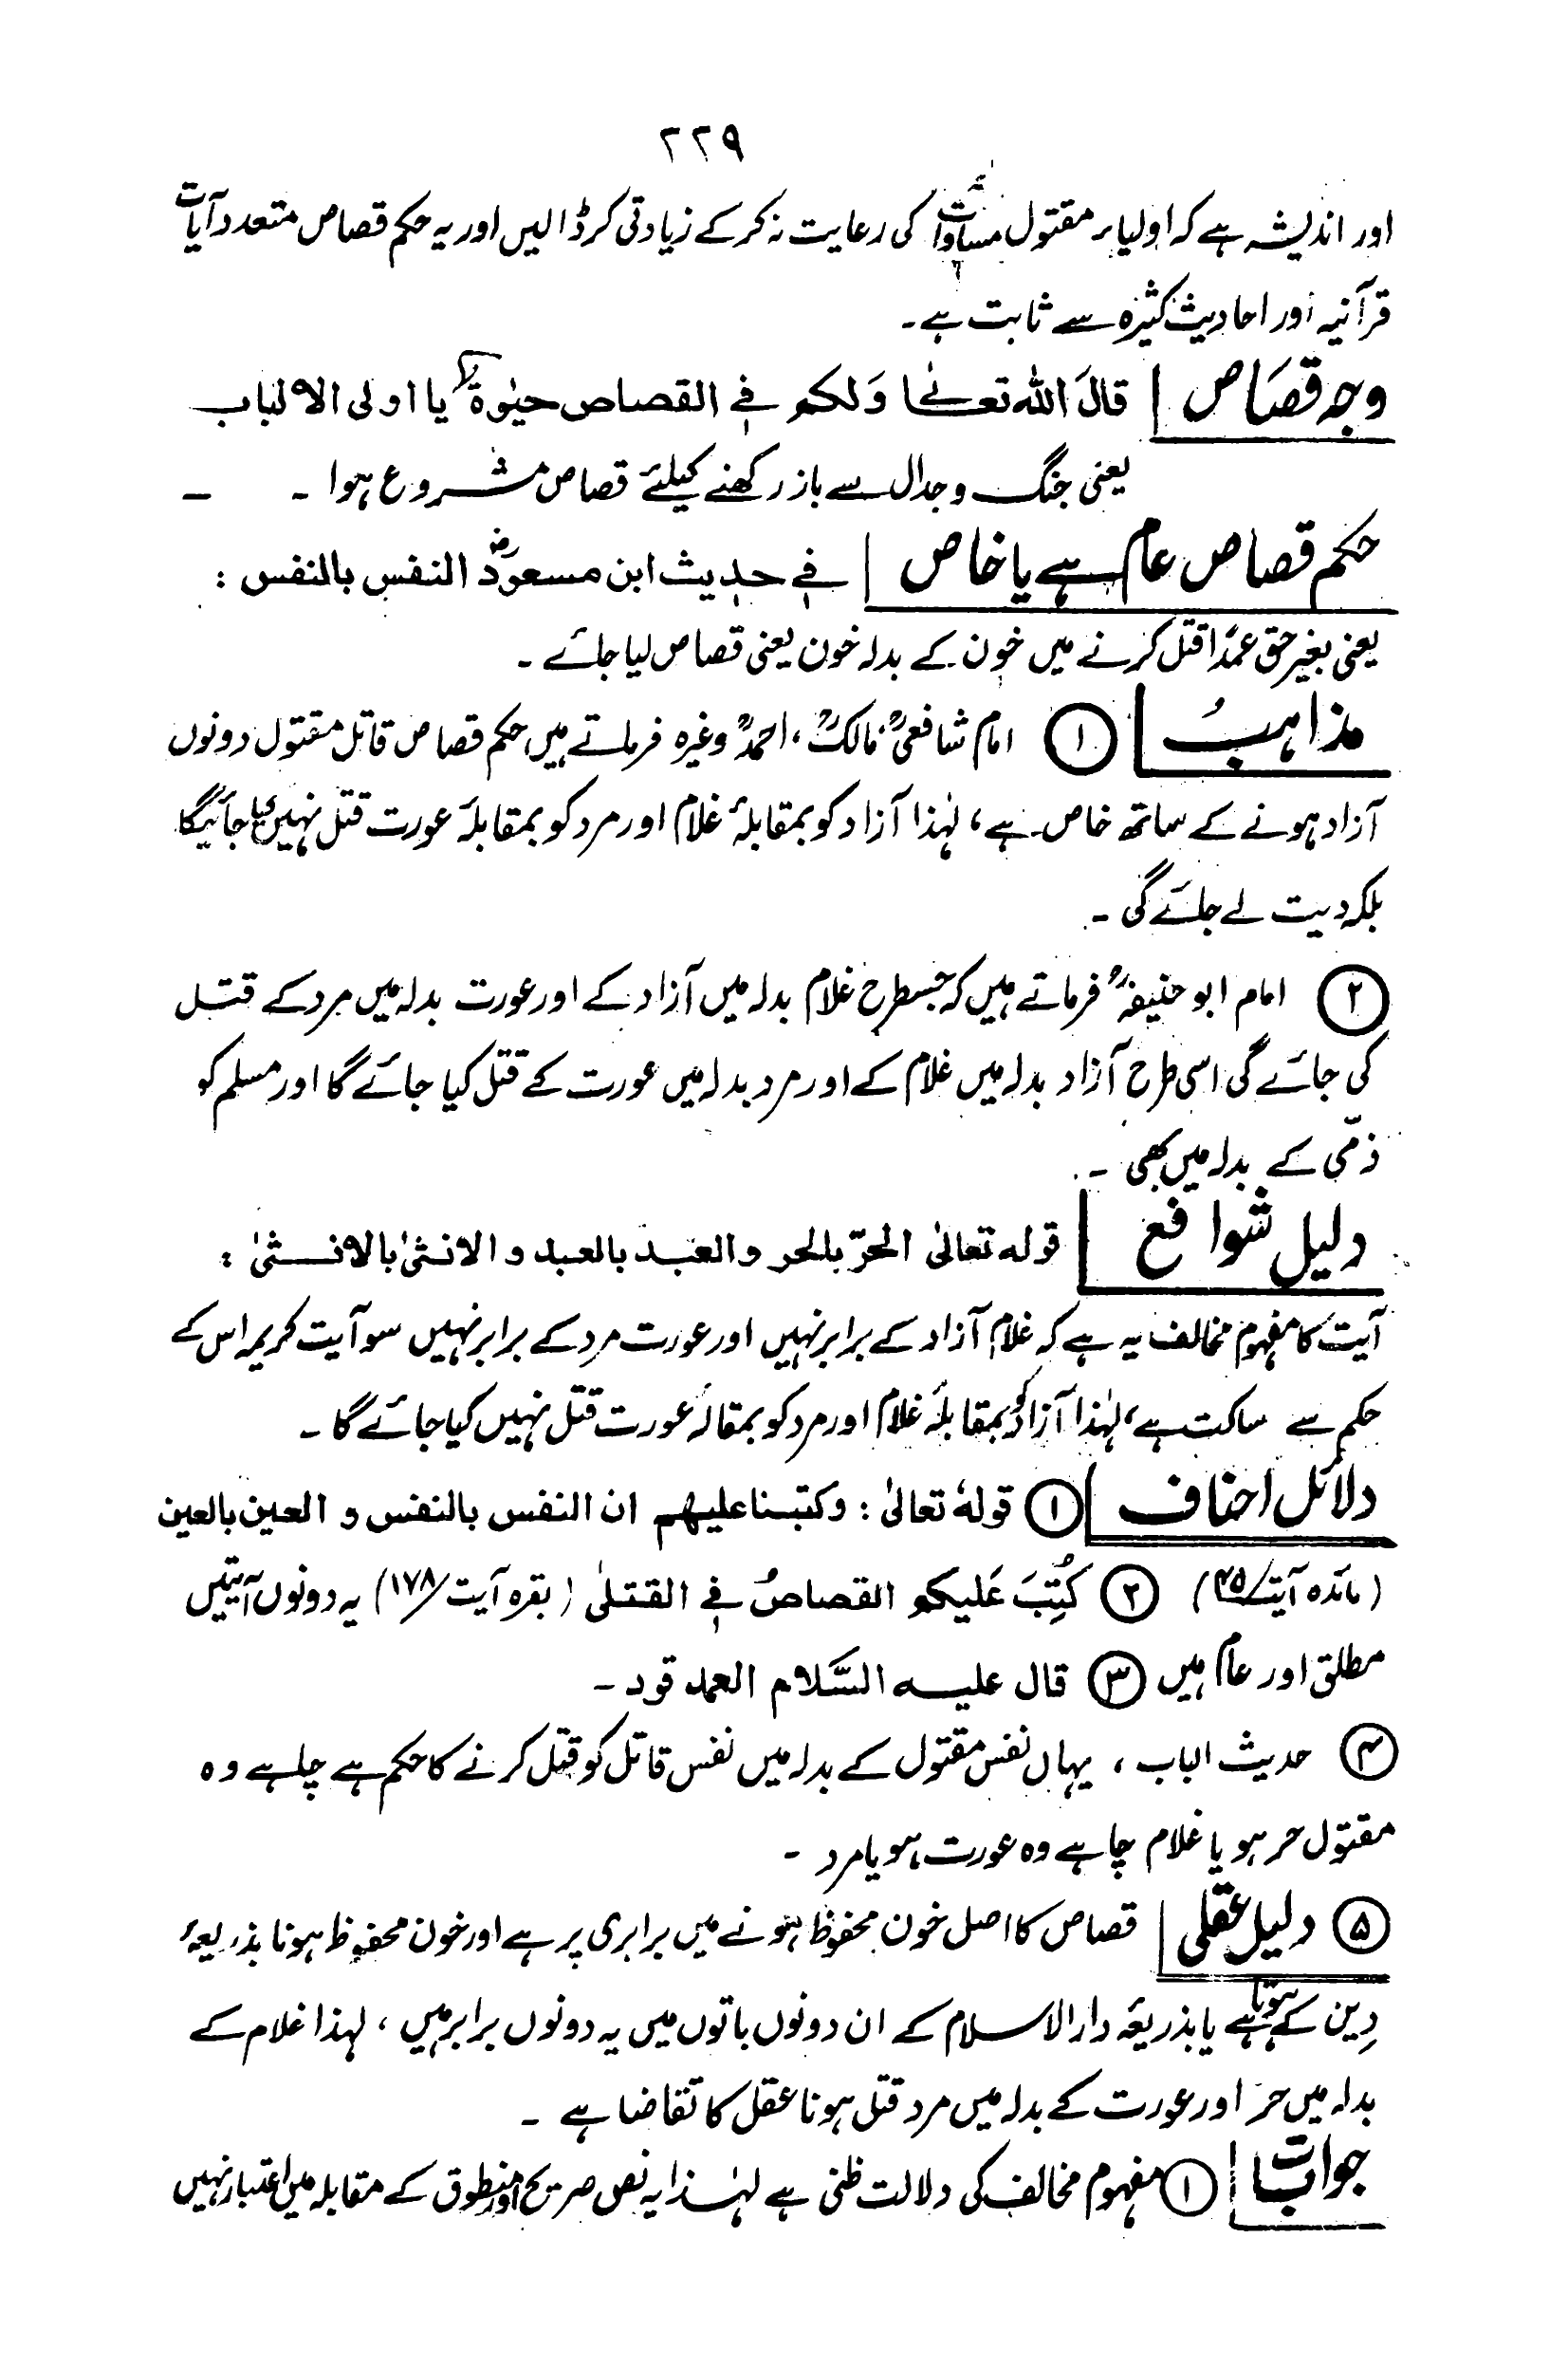 ۲۲۹
اور اندیشہ ہے کہ اولیاء مقتول مساوات کی رعایت نہ کرکے زیادتی کر ڈالیں اور یہ حکم قصاص متعدد آیات
قرآنیہ اور احادیث کثیرہ سے ثابت ہے۔
وجہ قصَاص | قالَ اللہ تعالےٰ وَلکم فی القصاص حیٰوۃ یا اولی الالباب
یعنی جنگ و جدال سے باز رکھنے کیلئے قصاص مشروع ہوا ۔ ۔
حکم قصاص عام ہے یا خاص | فی حدیث ابن مسعودؓ النفس بالنفس :
یعنی بغیر حق عمدًا قتل کرنے میں خون کے بدلہ خون یعنی قصاص لیا جائے ۔
مذاہبُ | ① امام شافعیؒ، مالکؒ، احمدؒ وغیرہ فرماتے ہیں حکم قصاص قاتل مقتول دونوں
آزاد ہونے کے ساتھ خاص ہے، لہٰذا آزاد کو بمقابلۂ غلام اور مرد کو بمقابلۂ عورت قتل نہیں کیا جائیگا
بلکہ دیت لے جائے گی ۔
② امام ابو حنیفہؒ فرماتے ہیں کہ جسطرح غلام بدلہ میں آزاد کے اور عورت بدلہ میں مرد کے قتل
کی جائے گی اسی طرح آزاد بدلہ میں غلام کے اور مرد بدلہ میں عورت کے قتل کیا جائے گا اور مسلم کو
ذمّی کے بدلہ میں بھی ۔
دلیل شوافع | قولہ تعالیٰ الحرّ بالحر والعَبد بالعبد و الانثیٰ بالانثیٰ :
آیت کا مفہوم مخالف یہ ہے کہ غلام آزاد کے برابر نہیں اور عورت مرد کے برابر نہیں سو آیت کریمہ اس کے
حکم سے ساکت ہے، لہٰذا آزاد کو بمقابلۂ غلام اور مرد کو بمقالہ عورت قتل نہیں کیا جائے گا ۔
دلائل احناف | ① قولہٗ تعالیٰ : وکتبنا علیہم ان النفس بالنفس و العین بالعین
(مائدہ آیت/۴۵) ② کُتِبَ عَلیکم القصاصُ فی القتلیٰ (بقرہ آیت/۱۷۸) یہ دونوں آیتیں
مطلق اور عام ہیں ③ قال علیہ السَّلام العمد قود ۔
④ حدیث الباب ، یہاں نفس مقتول کے بدلہ میں نفس قاتل کو قتل کرنے کا حکم ہے چاہے وہ
مقتول حر ہو یا غلام چاہے وہ عورت ہو یا مرد ۔
⑤ دلیل عقلی | قصاص کا اصل خون محفوظ ہونے میں برابری پر ہے اور خون محفوظ ہونا بذریعۂ
دِین کے ہوتا ہے یا بذریعۂ دارالاسلام کے ان دونوں باتوں میں یہ دونوں برابر ہیں ، لہذا غلام کے
بدلہ میں حر اور عورت کے بدلہ میں مرد قتل ہونا عقل کا تقاضا ہے ۔
جوابات | ① مفہوم مخالف کی دلالت ظنی ہے لہٰذا یہ نص صریح اور منطوق کے مقابلہ میں اعتبار نہیں